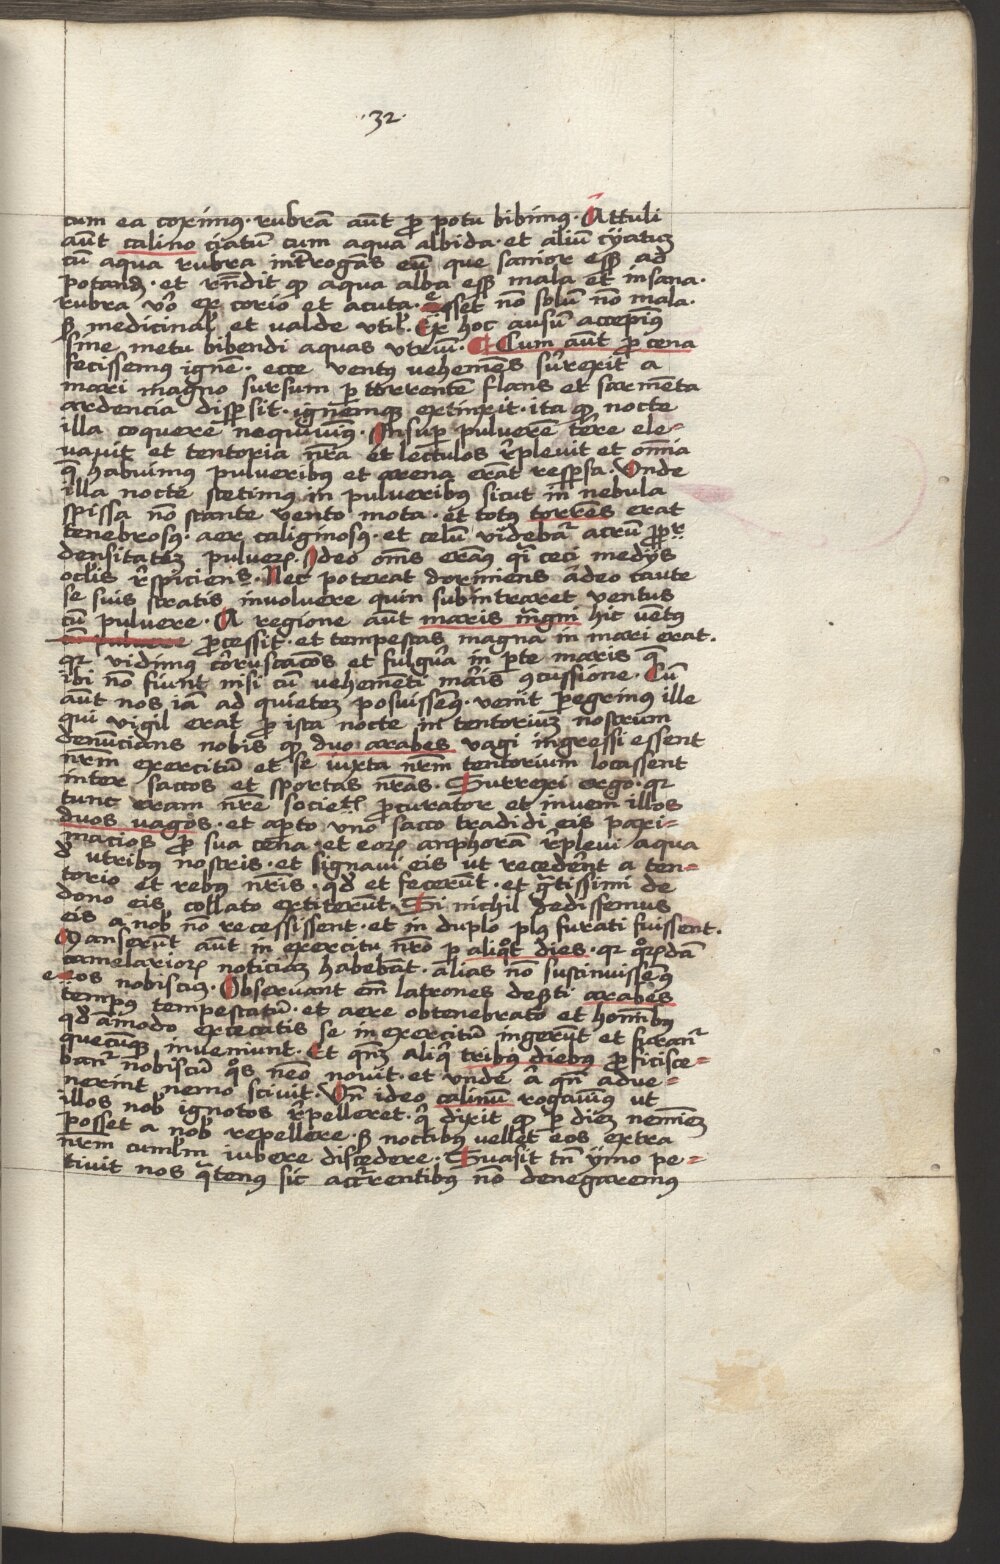 ·32·
cum ea coximꝯ · rubrā aūt ꝓ potu bibimꝯ · Attuli
aūt calino ciatū cum aqua albida · et aliū cÿatuꝫ
cū aqua rubra int̄rogās eū que sanior eſſꝫ ad
potand̄ · et rn̄dit qꝫ aqua alba eſſꝫ mala et insana ·
rubra v̄o ex corio et acuta · esset nō solū nō mala ·
ꝫ medicinal̄ et valde vtil̄ · Ex hoc ausū accepimꝯ
sine metu bibendi aquas vtriuſꝫ · ¶ Cum aūt ꝓ cena
fecissemꝯ ignē · ecce ventꝯ vehemēs sūrexit a
mari magno sursum ꝑ torrentē flans et sarmēta
ardencia disꝑsit · ignemqꝫ extinxit · ita qꝫ nocte
illa coquere nequiuimꝯ · Insuꝑ puluerē t̄re ele=
vavit et tentoria nr̄a et lectulos r̄pleuit et om̄ia
q̄ habuimus pulueribꝯ et arena erāt resꝑsa · Vnde
illa nocte stetimꝯ in pulueribꝯ sicut in nebula
spissa nō stante vento mota · et totꝯ torrēs erat
tenebrosꝯ · aer caliginosꝯ · et celū videbat̄ atrū ꝓpt̄
densitatēꝫ pulueꝝ · Ideo om̄s eramꝯ q̄i ceci medÿs
oclīs r̄spiciens · Nec poterat dormiens adeo caute
se suis stratis involuere quin subintraret ventus
cū puluere · A regione aūt maris m̄gni hic vētꝯ
cū puluere ꝓcessit · et tempestas magna in mari erat ·
qꝛ vidimꝯ coruscacōs et fulgura in ꝑte maris q̄
ibi nō fiunt nisi cū vehemēti mar̄is ꝯcussione · Cū
aūt nos iā ad quietēꝫ posuissemꝯ · venit ꝑegrinus ille
qui vigil erat ꝓ ista nocte in tentoriuꝫ nostrum
denūccians nobis qꝫ duo arabes vagi ingressi essent
nr̄m exercitū et se iuxta nr̄m tentorium locassent
inter saccos et sportas nr̄as · Surrexi ergo · qꝛ
tunc eram nr̄e societ̄ ꝓcurator et inveni illos
duos vagos · et apto vno sacco tradidi eis paxi=
macios ꝓ sua cena · et eoꝝ amphorā r̄pleui aqua
d̄ utribꝯ nostris · et signaui eis ut recederēt a ten=
torio et rebꝯ nr̄is · qd̄ et fecerūt · et gr̄tissimi de
dono eis collato extiterūt · Si nichil dedissemus
eis a nob̄ nō recessissent · et in duplo plꝯ furati fuissent ·
Manserūt aūt in exercitu nr̄o ꝑ aliqt̄ dies · qꝛ qr̄dā
camelarioꝝ noticiaꝫ habebāt · alias nō sustinuissemꝯ
eos nobiscuꝫ · Observant em̄ latrones deſti arabes
tempꝯ tempestatū · et aere obtenebrato et hom̄ibꝯ
qd̄āmodo excecatis se in exercitū ingerūt et furant̄
quecūqꝫ inveniunt · Et qm̄ aliq̄ tribꝯ diebꝯ ꝓficisce=
bant̄ nobiscū qͦs nemo novit · et vnde a qn̄ adve=
nerint nemo scivit · Vn̄ ideo calinū rogauimꝯ ut
illos nob̄ ignotos r̄pelleret · q̄ dixit qꝫ ꝑ dieꝫ nemīeꝫ
posset a nob̄ repellere · ꝫ noctibꝯ vellet eos extra
nr̄m cumul̄m iubere discedere · Suasit tn̄ ÿmo pe=
tivit nos qͣtenꝯ sic accurrentibꝯ nō denegaremꝯ